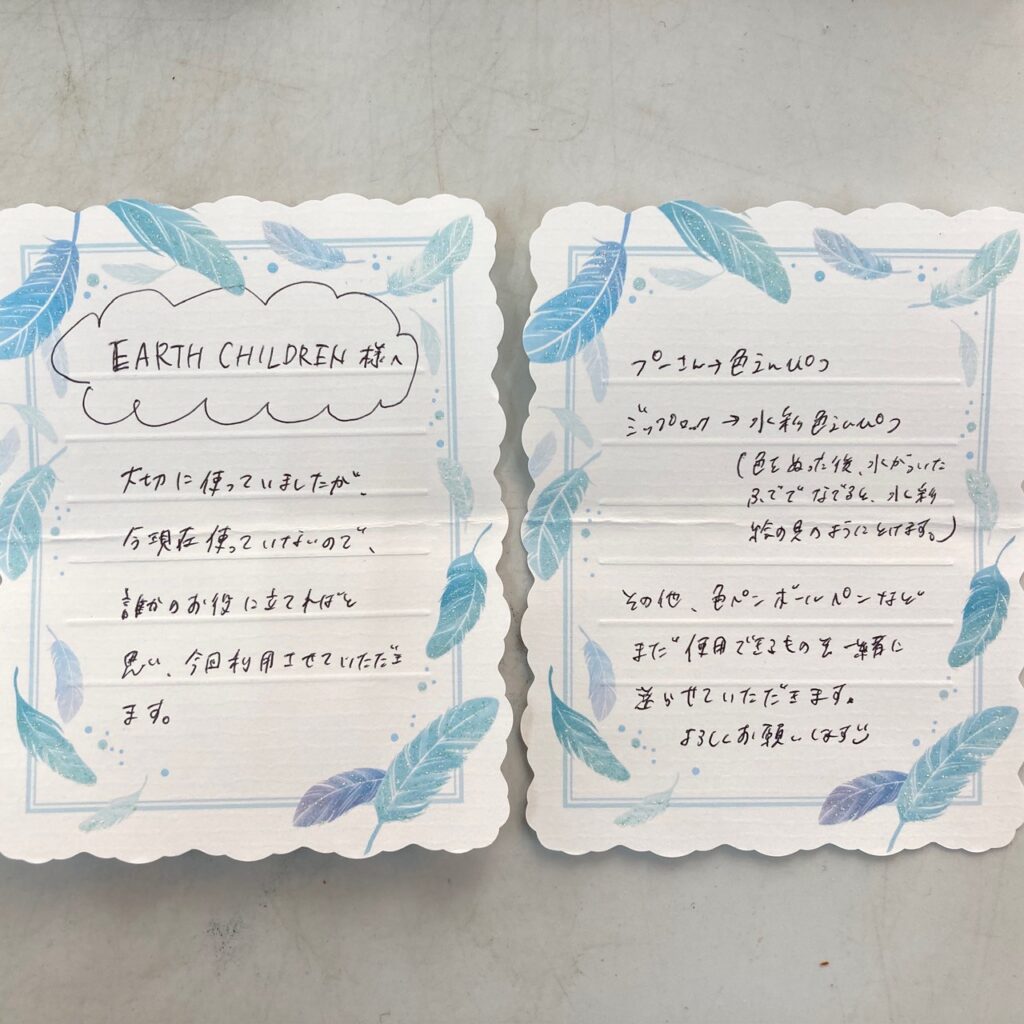 EARTH CHILDREN 様へ
大切に使っていましたが、
今現在使っていないので、
誰かのお役に立てればと
思い、今回利用させていただき
ます。
プーさん→色えんぴつ
ジップロック→水彩色えんぴつ
(色をぬった後、水がついた
ふででなでると、水彩
絵の具のようにとけます。)
その他、色ペンボールペンなど
まだ使用できるものを一緒に
送らせていただきます。
よろしくお願いします